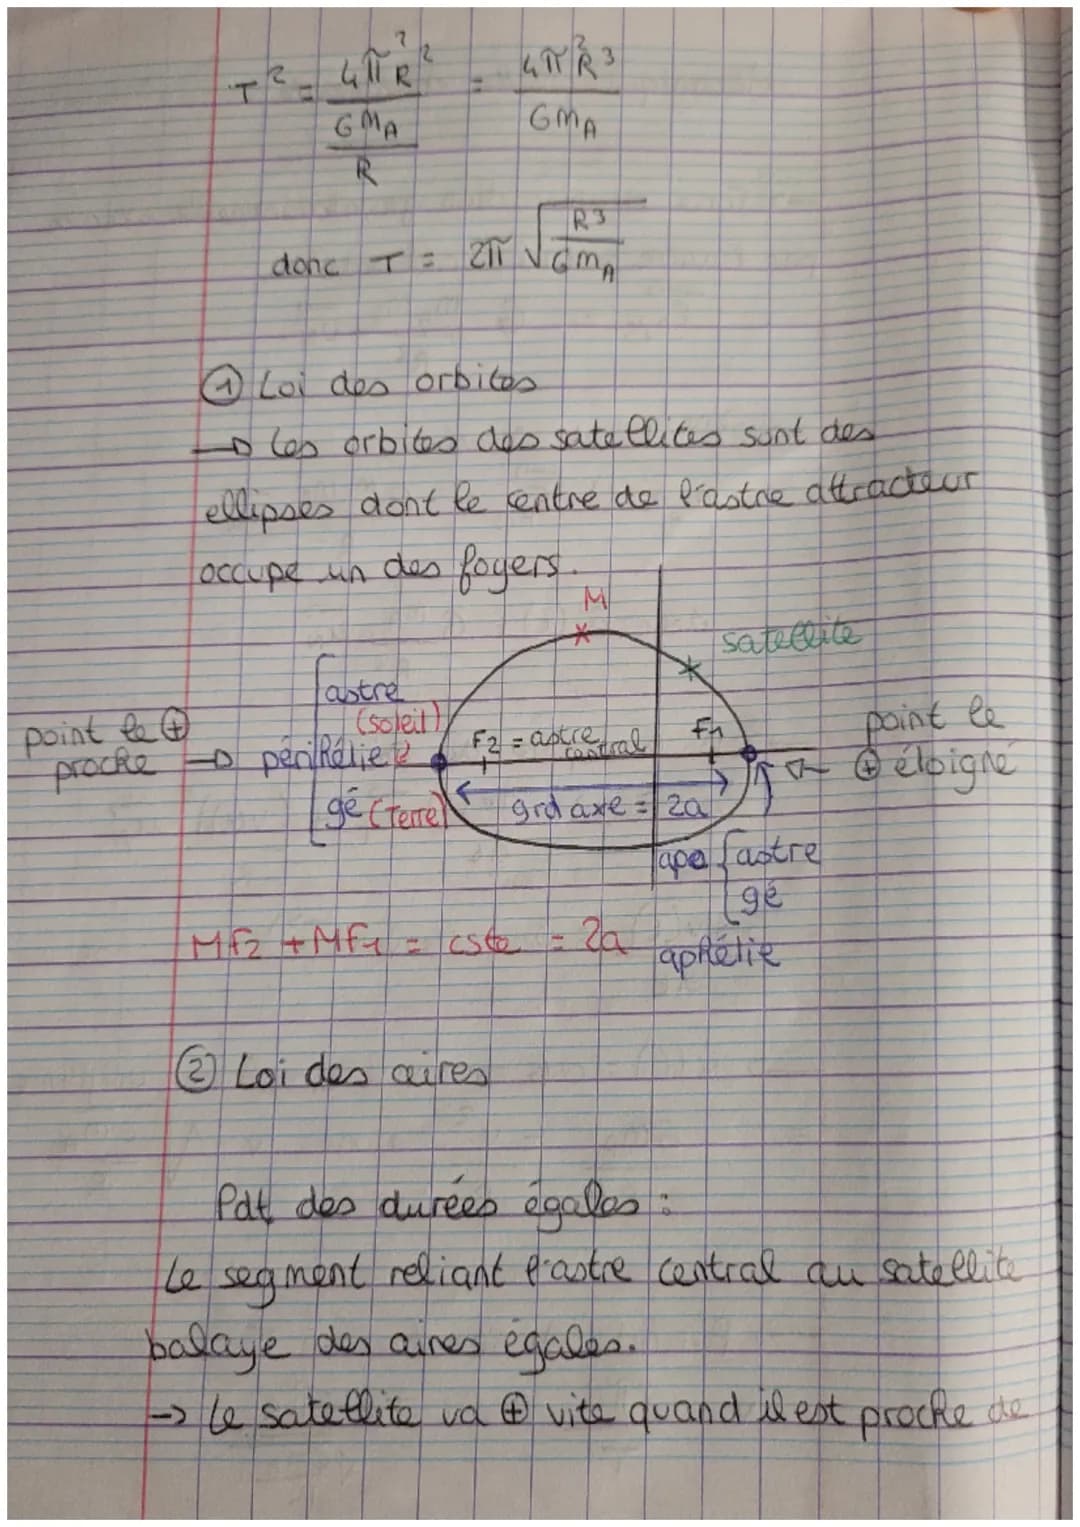 T² = 4π²R² / (GM_A / R) = 4π²R³ / GM_A
donc T = 2π √(R³ / GM_A)
① Loi des orbites
→ Les orbites des satellites sont des
ellipses dont le centre de l'astre attracteur
occupe un des foyers.
M
satellite
astre
(soleil)
point le ⊕
proche → périhélie
gé (Terre)
F2 = astre
central
F1
point le
⊕ éloigné
grd axe = 2a
apo { astre
gé
MF2 + MF1 = cste = 2a
aphélie
② Loi des aires
Pdt des durées égales :
Le segment reliant l'astre central au satellite
balaye des aires égales.
→ Le satellite va ⊕ vite quand il est proche de